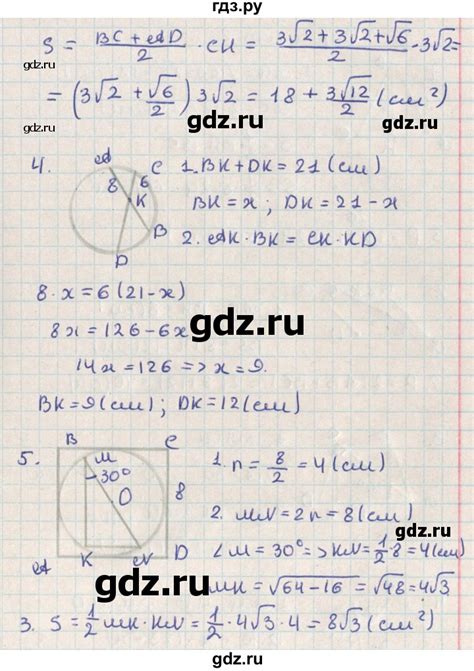 гдз.ру
S = (BC + AD)/2 · CH = (3√2 + 3√2 + √6)/2 · 3√2 =
= (3√2 + √6/2) 3√2 = 18 + 3√12/2 (см²)
gdz.ru
gdz.ru
gdz.ru
4.
A
C
8
6
K
B
D
1. BK + DK = 21 (см)
BK = x ; DK = 21 - x
2. AK · BK = CK · KD
8 · x = 6 (21 - x)
8x = 126 - 6x
gdz.ru
14x = 126 => x = 9.
BK = 9 (см) ; DK = 12 (см)
gdz.ru
gdz.ru
5.
B
C
M
30°
O
8
A
K
N
D
1. r = 8/2 = 4 (см)
2. MN = 2r = 8 (см)
∠M = 30° => KN = 1/2 · 8 = 4 (см)
gdz.ru
MK = √64 - 16 = √48 = 4√3
3. S = 1/2 MK · KN = 1/2 · 4√3 · 4 = 8√3 (см²)
gdz.ru
gdz.ru